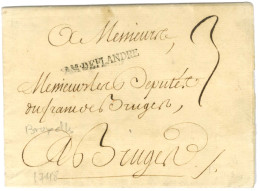 A Messieurs
AM·DEFLANDRE
Messieurs les Deputés
du franc de Bruges,
Bruxelles
A Bruges /.
1746
3